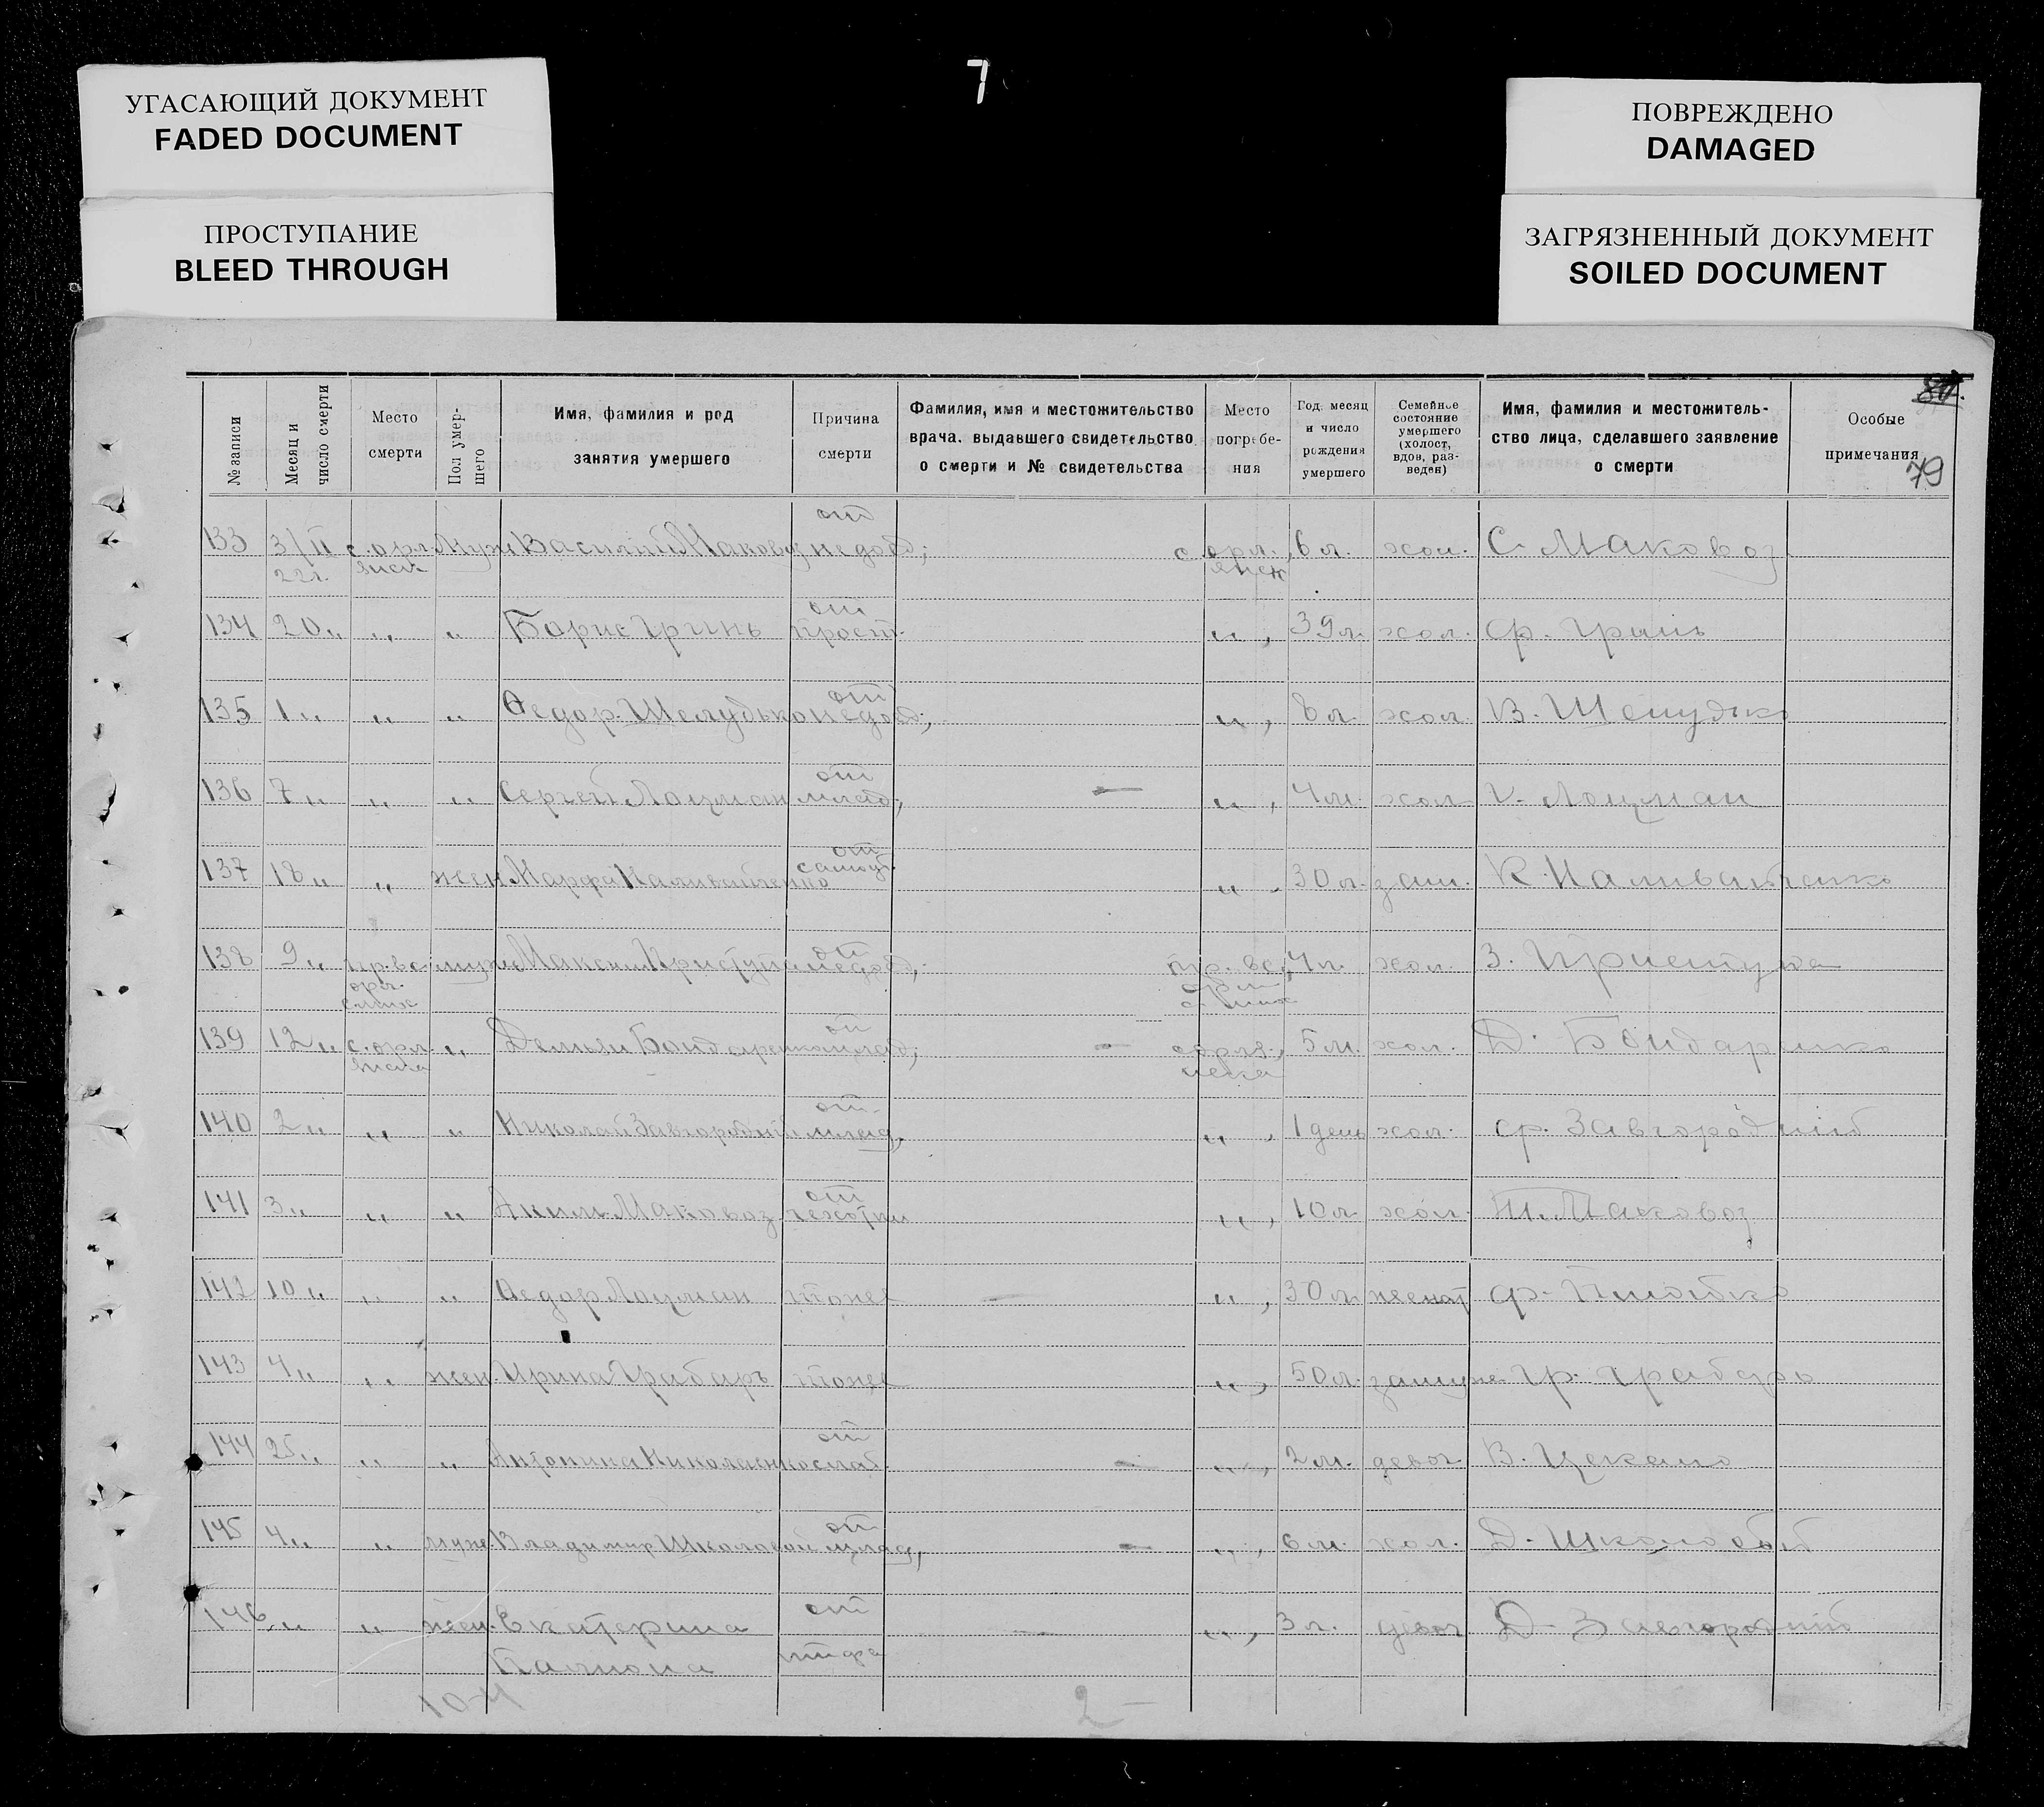 7
УГАСАЮЩИЙ ДОКУМЕНТ
FADED DOCUMENT
ПРОСТУПАНИЕ
BLEED THROUGH
ПОВРЕЖДЕНО
DAMAGED
ЗАГРЯЗНЕННЫЙ ДОКУМЕНТ
SOILED DOCUMENT
79
№ записи
Месяц и число смерти
Место смерти
Пол умер-шего
Имя, фамилия и род занятия умершего
Причина смерти
Фамилия, имя и местожительство врача, выдавшего свидетельство о смерти и № свидетельства
Место погребе-ния
Год, месяц и число рождения умершего
Семейное состояние умершего (холост, вдов, раз-веден)
Имя, фамилия и местожитель-ство лица, сделавшего заявление о смерти
Особые примечания
133 3/II 22г. с. орл. Муж Василий Маковоз от недоед; с. орл. 6 л. хол. С. Маковоз
134 20 „ „ „ Борис Гринь от прост. „ 39 л. хол. Ф. Гринь
135 1 „ „ „ Ѳедор Шелудько от недоед; „ 8 л. хол. В. Шелудько
136 7 „ „ „ Сергей Лоцман от млад; — „ 4 м. хол. Лоцман
137 18 „ „ жен Марфа Наливайченко от „ 30 л. зам. К. Наливайченко
138 9 „ муж Максим Приступа от недоед; 4 л. хол. З. Приступа
139 12 „ с. орл. „ Демьян Бондаренко млад; от — 5 м. хол. Д. Бондаренко
140 2 „ „ „ Николай Завгородний от млад, „ 1 день хол. Ф. Завгородній
141 3 „ „ „ Аким Маковоз от чехотки „ 10 л. хол. Маковоз
142 10 „ „ „ Ѳедор Лоцман — „ 30 л. женат Ф.
143 4 „ „ жен. Ирина Грабарь „ 50 л. замужн Гр. Грабарь
144 25 „ „ „ Антонина Николаенко от слаб. — „ 2 м. девоч В.
145 4 „ „ муж. Владимир Школовой от млад, — „ 6 м. хол. Д. Школовой
146 „ „ жен. Екатерина от тифа — „ 3 л. девоч Д. Завгородній
2 —